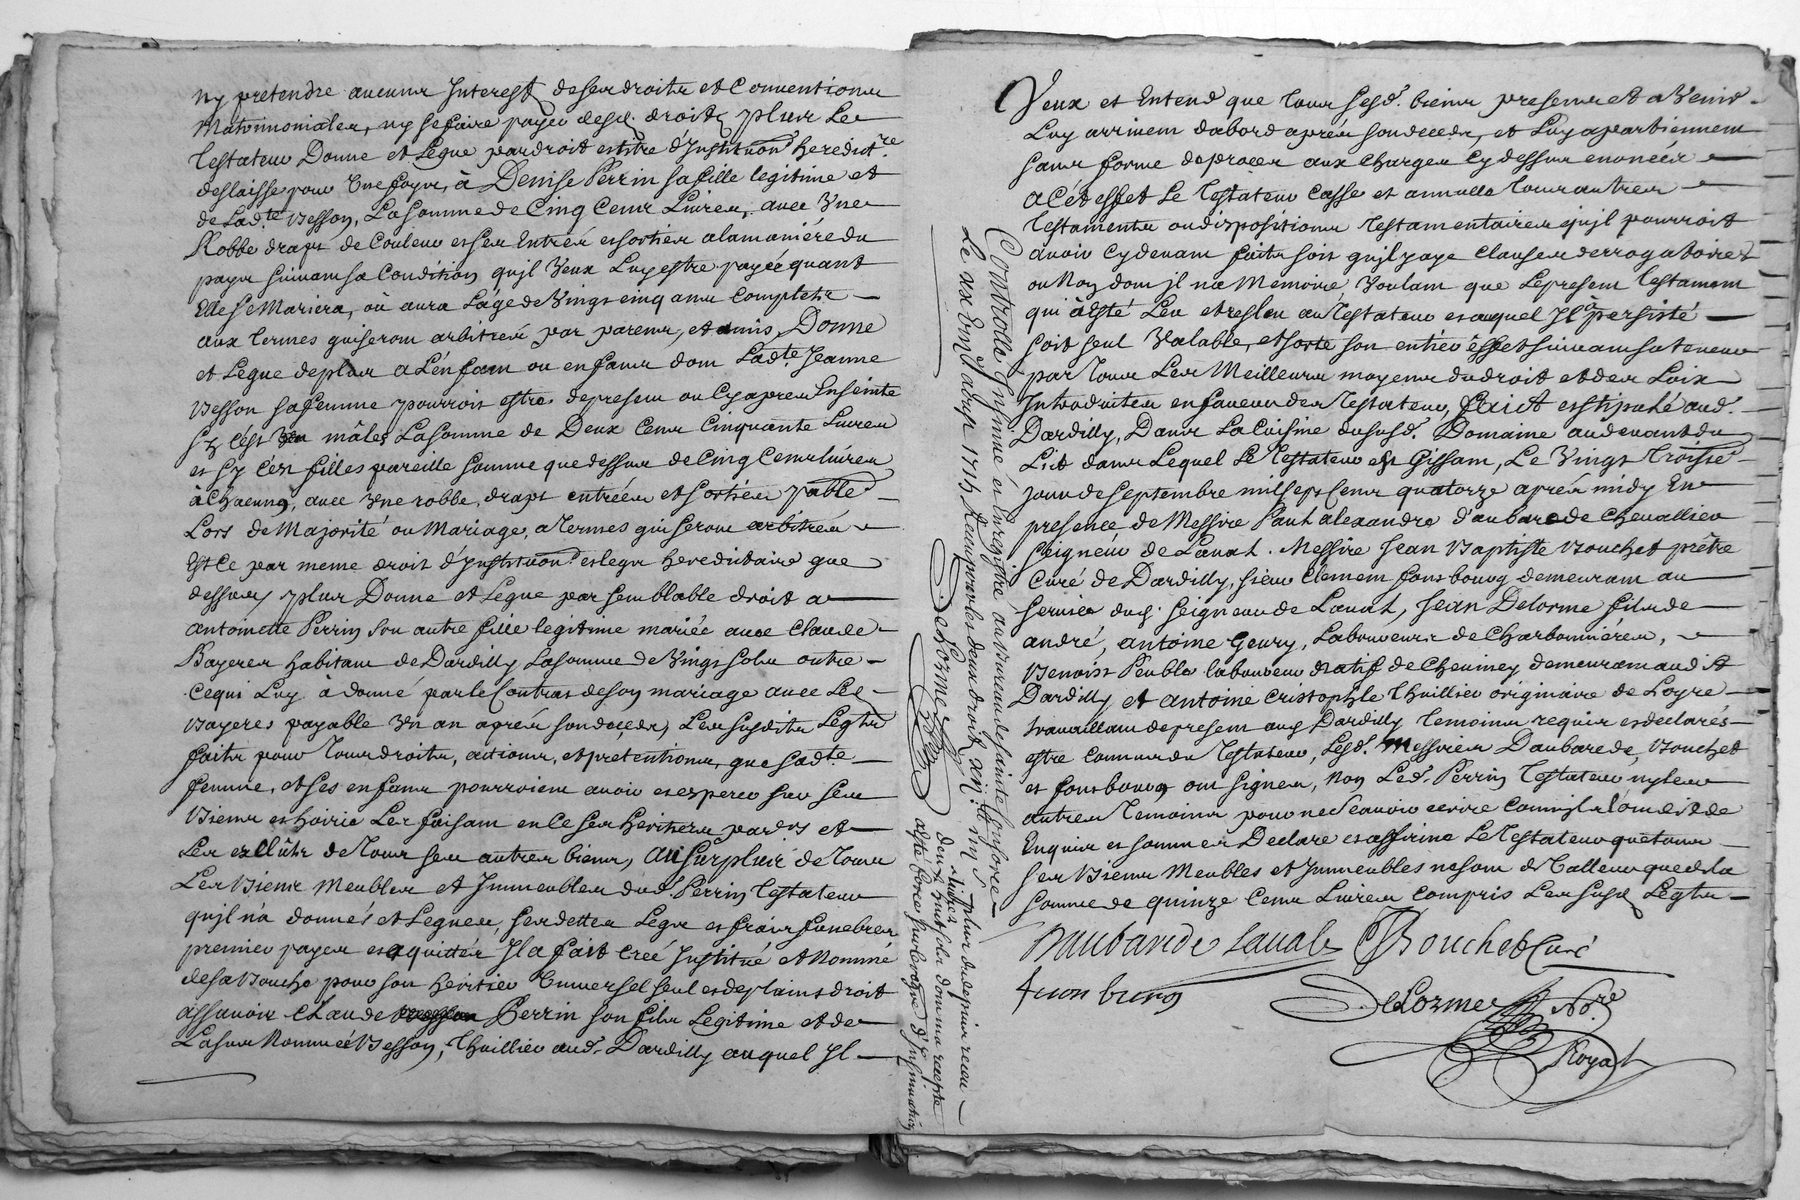 ny pretendre aucuns Interest de ses droits et Conventions
Matrimoniales, ny se faire payer desd. droits plus Le
Testateur Donne et Legue par droit et titre d'Institution heredit.re
deslaisse pour une foys, à Denise Perrin sa fille legitime et
de Lad.te Besson, La Somme de Cinq Cents Livres, avec Une
Robbe draps de Couleur et ses Entrées et sorties a la manière du
pays suivant sa Condition qu'jl Veux Luy estre payée quant
Elle Se Mariera, où aura L'age de Vingt cinq ans Complets —
aux termes qui seront arbitrés par parens, et amis, Donne
et Legue de plus a L'énfant ou enfans dont Lad.te Jeanne
Besson sa femme pourroit estre de present ou Cy apres Enseinte
Sy c'ést mâles La Somme de Deux Cents Cinquante Livres
et Sy C'ést filles pareille Somme que dessus de Cinq Cents livres
à Chacune, avec Une robbe, draps entrées et sorties pable
Lors de Majorité ou Mariage, a termes qui seront arbitrés
Est Ce par meme droit d'Institution et legs hereditaire que
dessus, plus Donne et Legue par semblable droit a
antoinette Perrin son autre fille legitime mariée avec Claude
Bayeres habitant de Dardilly La Somme de Vingt Sols outre
Ce qui Luy à donné par le Contrat de son mariage avec Led.
Bayeres payable Un an aprés son deceds, Les susdits Legts
faits pour Tous droits, actions, et pretentions, que Sad.te
femme, et ses enfans pourroient avoir et esperer sur ses
Biens et hoirie Les faisant en Ce ses heritiers par.rs et
Les exClûts de Tous ses autres biens, au Surplus de Tous
Les Biens Meubles et Immeubles dud. Perrin Testateur
qu'jl n'a donnés et Legués, ses dettes Legs et frais funebres
premier payés et aquittés Il a fait créé Institué et Nommé
de sa Bouche pour son heritier Universel seul et de plaint droit
assavoir Claude Perrin son fils Legitime et de
La sus Nommée Besson, Thuillier aud. Dardilly auquel Il
Veux et Entend que tous sesd. biens presens et a Venir
Luy arrivent d'abord aprés son deceds, et Luy apartiennent
sans forme de proces aux Charges Cy dessus enoncées
a Cét effet Le Testateur Casse et annulle Tous autres
Testaments ou dispositions Testamentaires qu'jl pourroit
avoir Cy devant faits soit qu'jl y aye Clauses derrogatoires
ou Non dont jl n'a Memoire Voulant que Le present Testament
qui à ésté Leu et releu au Testateur et auquel Il à persisté
soit seul Valable, et sorte son entier éffet suivant sa teneur
par Tous Les Meilleurs moyens du droit et des Loix
Introduites en faveur des Testateurs, faict et stipulé aud.
Dardilly, Dans La Cuisine du susd. Domaine au devant du
Lict dans Lequel Le Testateur est Gissant, Le Vingt Troisie
jour de Septembre mil sept Cents quatorze aprés midy En
presence de Messire Paul alexandre d'aubarede Chevallier
Seigneur de Laval. Messire Jean Baptiste Bouchet prêtre
Curé de Dardilly, sieur Clement fontbourg demeurant au
service dud. Seigneur de Laval, Jean Delorme fils de
andré, antoine Geury, Laboureurs de Charbonniéres,
Benoist Peuble laboureur Natif de Cheviney demeurant audit
Dardilly et antoine Cristophle Thuillier originaire de Loyre
travaillant de present aud. Dardilly, temoins requis et declarés
estre Connus du Testateur, Lesd. Messires Daubarede, Bouchet
et fontbourg ont Signés, Non Led. Perrin Testateur ny les
autres Temoins pour ne sçavoir ecrire Comm'jls L'ont dit de
Enquis et sommés Declare et affirme Le Testateur que tous
ses Biens Meubles et Immeubles ne sont de Valleur que de la
Somme de quinze Cents Livres Compris Les susd. Legts
Daubarede Laval Bouchet Curé
fontburg
DeLorme No.re
Royal
Controllé Insinué et Enregistré au bureau de sainte Consorce
Le xx.e Jan
1715
DeLorme